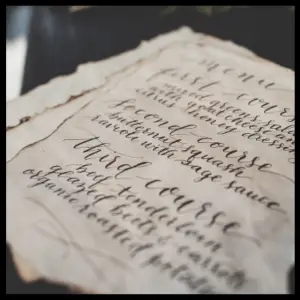 menu
first course
mixed greens salad
with goat cheese and
citrus honey dressing
second course
butternut squash
ravioli with sage sauce
third course
beef tenderloin
glazed beets & carrots
organic roasted potatoes